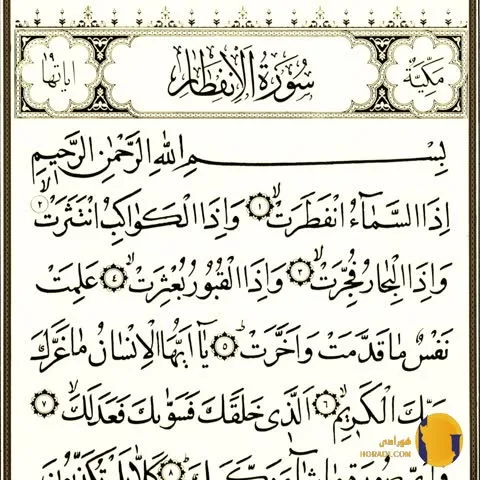 مَكِّيَّةٌ سُورَةُ الْاِنْفِطَارِ اٰيَاتُهَا ١٩
بِسْمِ اللّٰهِ الرَّحْمٰنِ الرَّحِيمِ
اِذَا السَّمَاۤءُ انْفَطَرَتْۙ ﴿١﴾ وَاِذَا الْكَوَاكِبُ انْتَثَرَتْۙ ﴿٢﴾
وَاِذَا الْبِحَارُ فُجِّرَتْۙ ﴿٣﴾ وَاِذَا الْقُبُورُ بُعْثِرَتْۙ ﴿٤﴾ عَلِمَتْ
نَفْسٌ مَا قَدَّمَتْ وَاَخَّرَتْۜ ﴿٥﴾ يَاۤ اَيُّهَا الْاِنْسَانُ مَا غَرَّكَ
بِرَبِّكَ الْكَرِيمِۙ ﴿٦﴾ اَلَّذِى خَلَقَكَ فَسَوّٰيكَ فَعَدَلَكَۙ ﴿٧﴾
صُورَةٍ مَا شَاۤءَ رَكَّبَكَۜ ﴿٨﴾ كَلَّا بَلْ تُكَذِّبُونَ
HORADI.COM